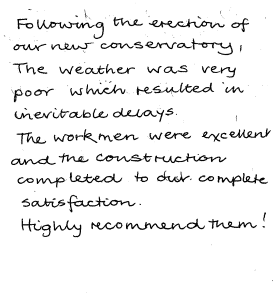 Following the erection of
our new conservatory,
The weather was very
poor which resulted in
inevitable delays.
The workmen were excellent
and the construction
completed to our complete
satisfaction.
Highly recommend them!